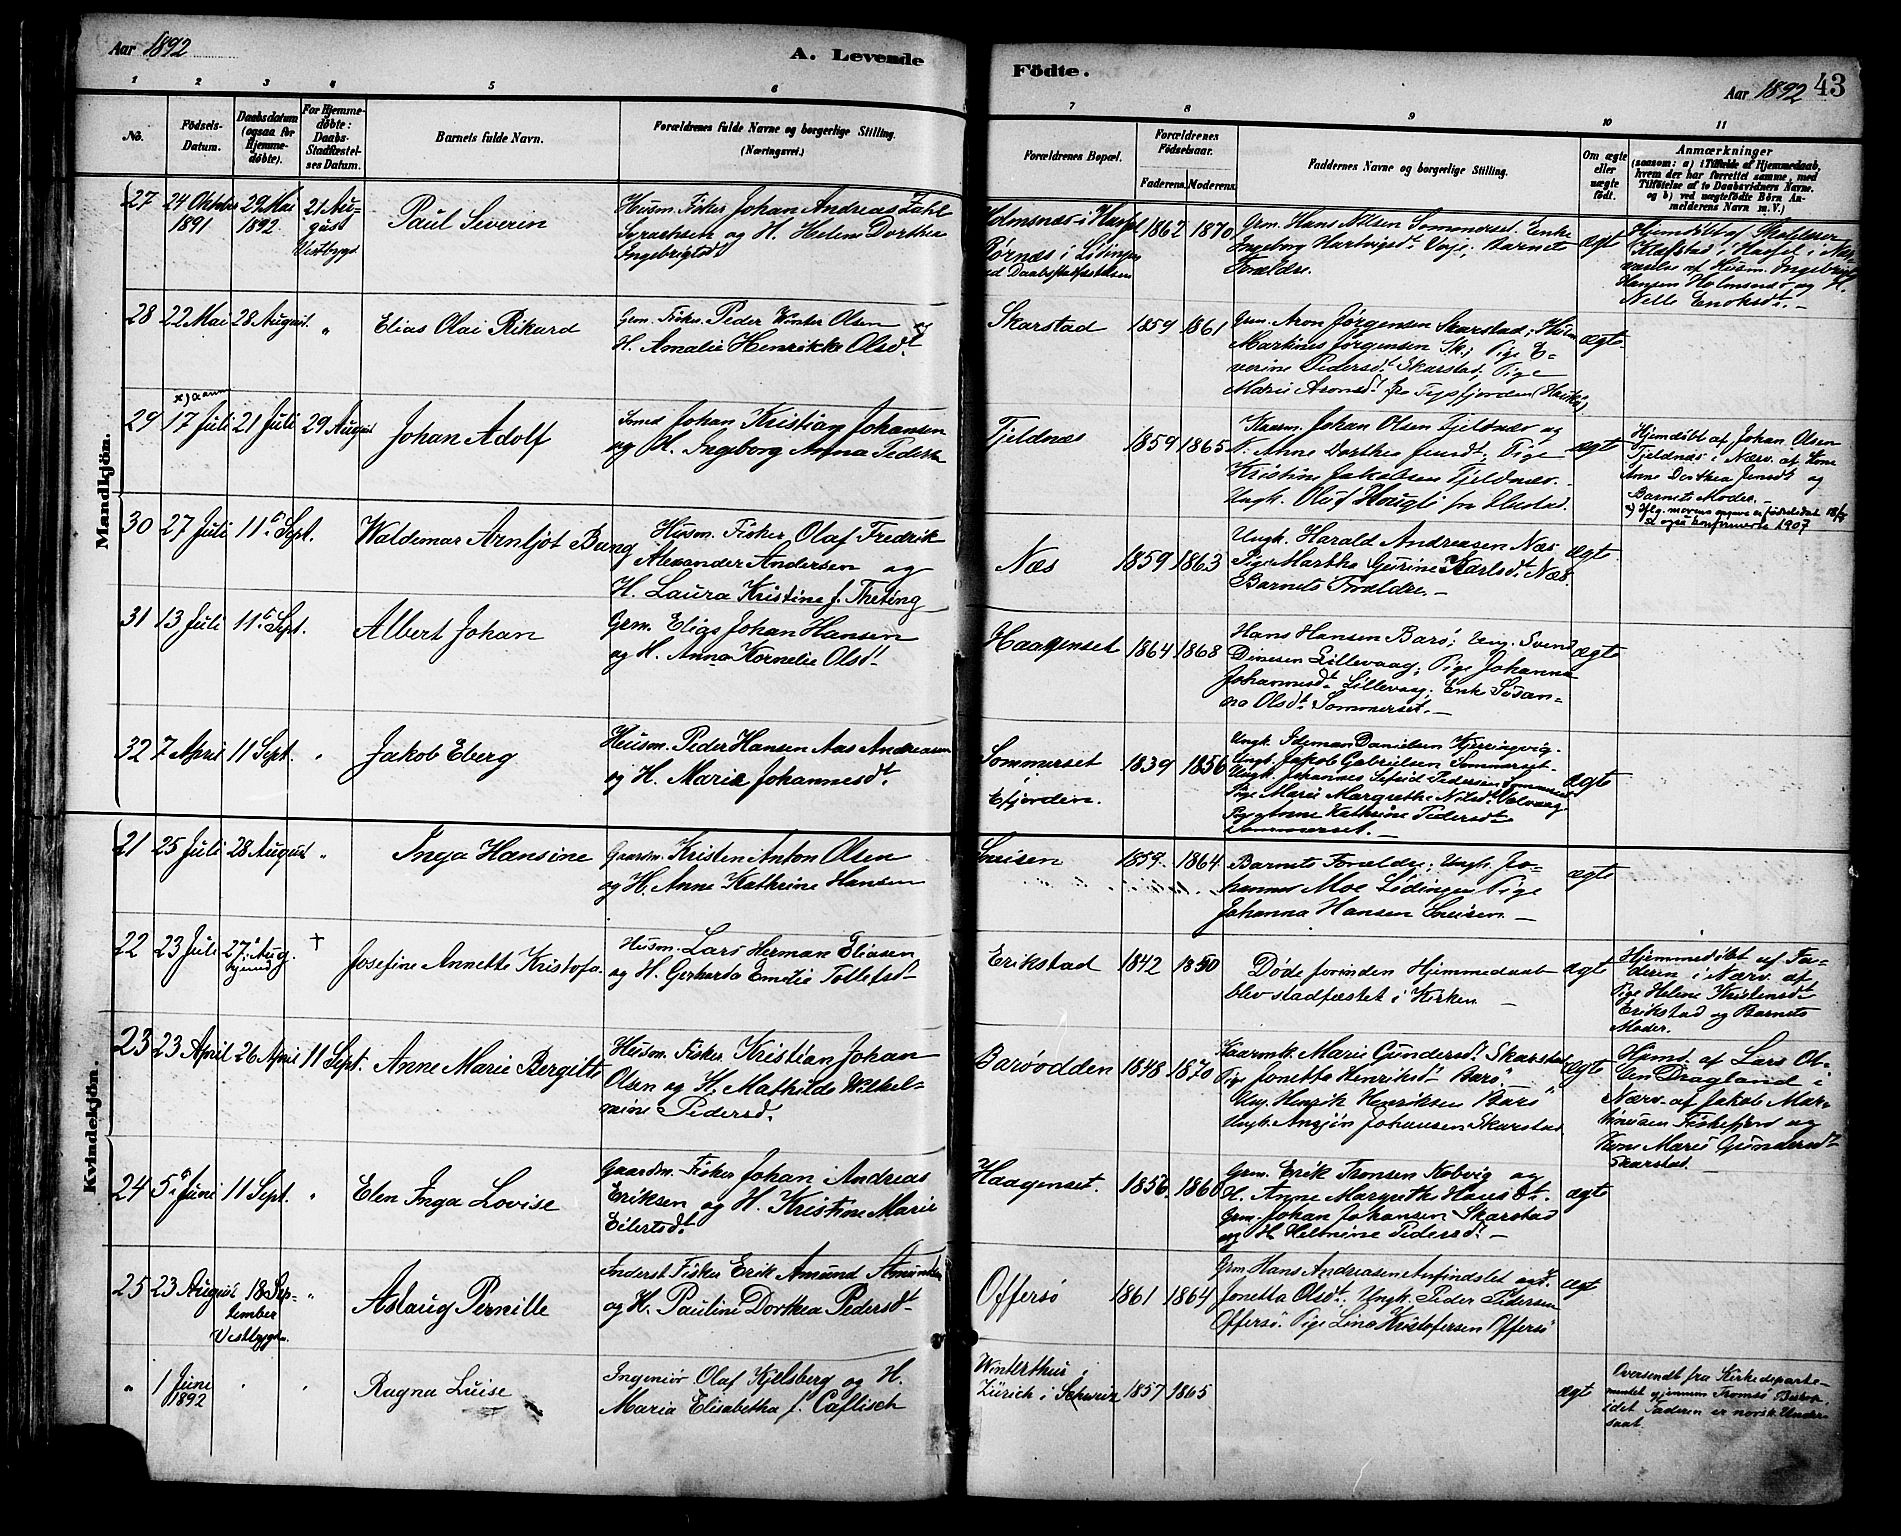 Aar 1892
A. Levende
Födte.
Aar 1892
43
1 2 3 4 5 6
7 8 9 10 11
No.
Födsels-
Datum.
Daabsdatum
(ogsaa for
Hjemme-
døbte).
For Hjemme-
døbte:
Daabs-
Stadfæstel-
ses Datum.
Barnets fulde Navn.
Forældrenes fulde Navne og borgerlige Stilling.
(Næringsvei.)
Forældrenes Bopæl.
Forældrenes
Födselsaar.
Faderens. Moderens.
Faddernes Navne og borgerlige Stilling.
Om ægte
eller
uægte
født.
Anmærkninger
(saasom: a) i Tilfælde af Hjemmedaab,
hvem der har forrettet samme, med
Tilföielse af to Daabsvidners Navne.
og b) ved uægtefödte Börn An-
melderens Navn m. V.)
Mandkjön.
27 24 Oktober
1891
29 Mai
1892
21 Au-
gust
Vestbygd
Paul Severin
Husm. Fisker Johan Andreas Zahl
Zyrachsen og H. Helene Dorthea
Ingebrigtsdt
Holmsnæs i
i Lödingen
ved Daabsstadfæstelsen
1862 1870
Grm. Hans Nilsen Sommerset. Enke
Ingeborg Hartvigsdt Vaje, Barnets
Forældre.
ægte
Hjemdöbt af Skolelærer
Klæfstad i i Nær-
værelse af Husm. Ingebrigt
Hansen Holmsnæs og H.
Nelle Enoksdt. —
28 22 Mai 28 August. "
Elias Olai Rikard
Grm. Fisker. Peder Winter Olsen og
H. Amalie Henrikke Olsdt
Skarstad 1859 1861
Grm. Aron Jörgensen Skarstad; Husm
Martines Jørgensen Sk.; Pige E-
verine Pedersdt Skarstad, Pige
Marie Aronsdt fra Tysfjorden
ægte.
29 17 Juli 21 Juli 29 August
Johan Adolf
Smed Johan Kristian Johansen
og H. Ingeborg Anna Pedersen
Tjeldnæs
1859 1865
Husm. Johan Olsen Tjeldnæs og
K. Anne Dorthea Jensdt, Pige
Kristine Jakobsen Tjeldnæs.
Ungk. Oluf Hougli fra
ægte
Hjemdöbt af Johan Olsen
Tjeldnæs i Nærv. af Kone
Anne Dorthea Jensdt og
Barnets Moder. —
x) Iflg. morens opgave er födselsdat
også konfirmerte 1907
30 27 Juli 11te Sept.
Waldemar Arntjot Bang
Husm. Fisker Olaf Fredrik
Alexander Andersen og
H. Laura Kristine f. Theting
Næs 1859 1863
Ungk. Harald Andreasen Næs
Pige Martha Gurine Karlsdt Næs.
Barnets Forældre. —
ægte
31 13 Juli 11te Sept.
Albert Johan
Grm. Elias Johan Hansen
og H. Anna Kornelie Olsdt
Haagenset 1864 1868
Hans Hansen Barö; Ung. Svend
Dinesen Lillevaag; Pige Johanna
Johannesdt Lillevaag; Enke Susan-
na Olsdt Sommerset. —
ægte
32 7 April 11 Sept. "
Jakob Eberg
Husm. Peder Hansen Aas Andreasen
og H. Marie Johannesdt
Sommerset
Efjorden.
1839 1856
Ungk. Danielsen Kjerringvig.
Ungk. Jakob Gabrielsen Sommerset.
Ungk. Johannes Sefrid Pedersen Sommerset
Pige Marie Margrethe Nilsdt
Pige Anne Kathrine Pedersdt
Sommerset. —
ægte
Kvindekjön.
21 25 Juli 28 August "
Inga Hansine
Gaardm. Kristen Anton Olsen
og H. Anne Kathrine Hansen
1859. 1864
Barnets Forældre; Ungk. Jo-
hannes Moe Lödingen Pige
Johanna Hansen —
ægte
22 23 Juli 27. Aug.
†
Josefine Annette Kristofa.
Husm. Lars Herman Eliasen
og H. Gerharda Emilie Tollefsdt
Erikstad 1842 1850
Döde forinden Hjemmedaab
blev stadfæstet i Kirken. —
ægte
Hjemmedöbt af Fa-
deren i Nærv. af
Pige Helene Kristensdt
Erikstad og Barnets
Moder.
23 23 April 26 April 11 Sept.
Anne Marie Bergitte
Husm. Fisker Kristian Johan
Olsen og H. Mathilde Wilhel-
mine Pedersdt.
Baröodden 1848 1870
Marie Gundersdt Skarstad
Pige Jonetta Henriksdt Barö.
Ung. Henrik Henriksen Barö
Ungk. Ansjön Johansen Skarstad
ægte
Hjemd. af Lars Ol-
sen Dragland i
Nærv. af Jakob Mar-
tinusen Fiskefjord og
Kone Marie Gundersdt
Skarstad. —
24 5te Juni 11 Sept. "
Elen Inga Lovise
Gaardm. Fisker Johan Andreas
Eriksen og H. Kristine Marie
Eilertsdt
Haagenset. 1856. 1860
Grm. Erik Tronsen Kobvig og
H. Anne Margrethe Hansdt.
Grm. Johan Johansen Skarstad
og H. Helmine Pedersdt. —
ægte
25 23 August 18 Sep-
tember
Vestbygden.
"
Aslaug Pernille
Inderst Fisker Erik Amund Amundsen
og H. Pauline Dorthea Pedersdt
Offersö 1861 1864
Grm Hans Andreasen Arfindslet og H.
Jonetta Olsdt; Ungk. Peder Pedersen
Offersö. Pige Lina Kristofersen Offersö
ægt
" 1 Juni
1892
Ragna Luise
Ingeniör Olaf Kjelsberg og H.
Maria Elisabetha f. Caflisch
Winterthur,
Zürich i Schweiz 1857 1865
ægt
Oversendt fra Kirkedeparte-
mentet gjennem Tromsö Bispe-
. Faderen er norsk Under-
saat.